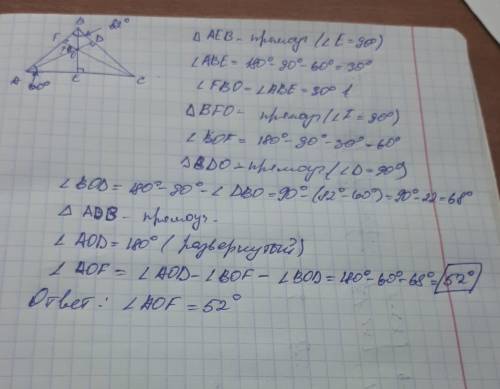 B
F
D
O
A
60°
E
C
82°
△ AEB - прямоуг (∠E = 90°)
∠ABE = 180° - 90° - 60° = 30°
∠FBO = ∠ABE = 30°
△BFO - прямоуг (∠F = 90°)
∠BOF = 180° - 90° - 30° = 60°
△BDO - прямоуг (∠D = 90°)
∠BOD = 180° - 90° - ∠DBO = 90° - (82° - 60°) = 90° - 22 = 68°
△ ADB - прямоуг.
∠AOD = 180° (развернутый)
∠AOF = ∠AOD - ∠BOF - ∠BOD = 180° - 60° - 68° = 52°
Ответ: ∠AOF = 52°